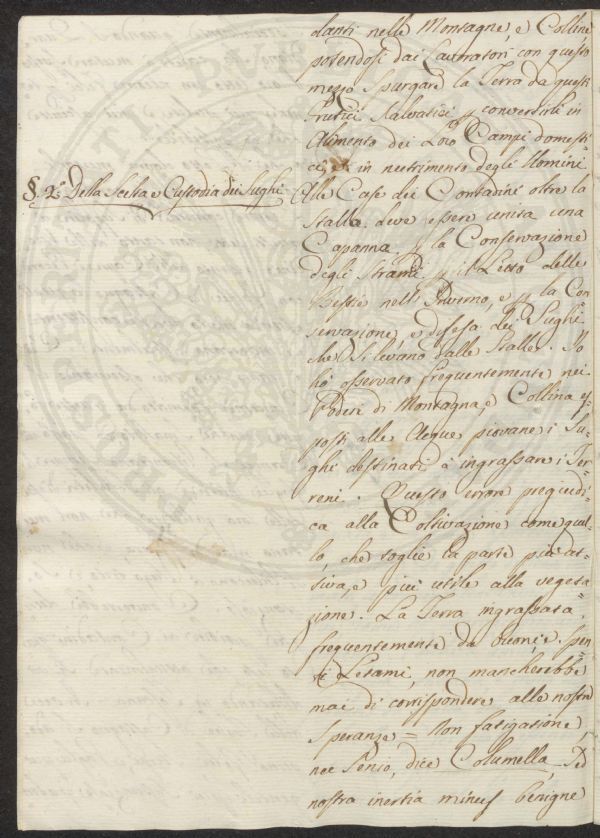 danti nelle Montagne, e Colline
potendosi dai Lavoratori con questo
mezzo Spurgare la Terra da questi
Frutici Salvatici p convertirli in
Alimento dei Loro Campi domesti
ci, e in nutrimento degli Uomini
§. 2.º Della Scelta e Custodia dei Sughi
Alle Case dei Contadini oltre la
Stalla deve essere unita una
Capanna p la Conservazione
degli Strami p il Letto delle
Bestie nell'Inverno, e p la Con
servazione, e difesa dei Sughi
che Si levano dalle Stalle. Io
hò osservato frequentemente nei
Poderi di Montagna, e Collina es
posti alle Acque piovane i Su
ghi destinati à ingrassare i Ter
reni. Questo errore pregiudi
ca alla Coltivazione come quel
lo, che toglie la parte più at
tiva, e più utile alla vegeta
zione. La Terra ingrassata
frequentemente da buoni, e
ti Letami, non mancherebbe
mai di corrispondere alle nostre
Speranze = Non fatigatione,
nec Senio, dice Columella, Sed
nostra inertia minus benigne